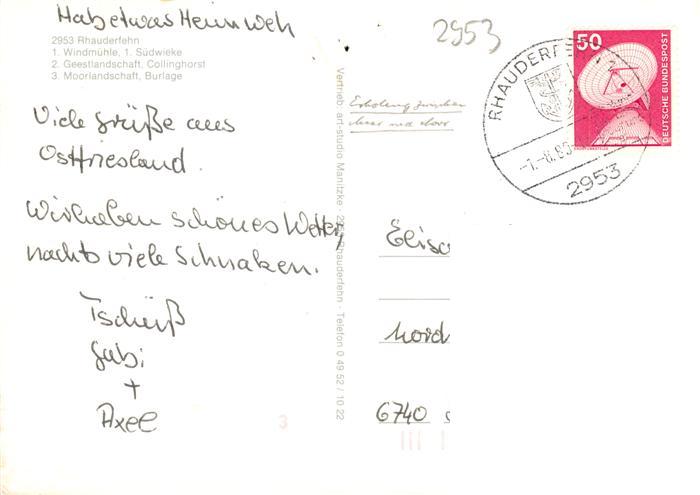 Hab etwas Heimweh
2953 Rhauderfehn
1. Windmühle, 1. Südwieke
2. Geestlandschaft, Collinghorst
3. Moorlandschaft, Burlage
Viele Grüße aus
Ostfriesland.
Wir haben schönes Wetter,
nachts viele Schnaken.
Tschüß
Gabi
+
Axel
3
Vertrieb: art-studio Manitzke Rhauderfehn - Telefon 0 49 52 / 10 22
2953
Erholung zwischen
Meer und Moor
50
DEUTSCHE BUNDESPOST
ERDFUNKSTELLE
RHAUDERFEHN
2953
Elisa
Nord
6740